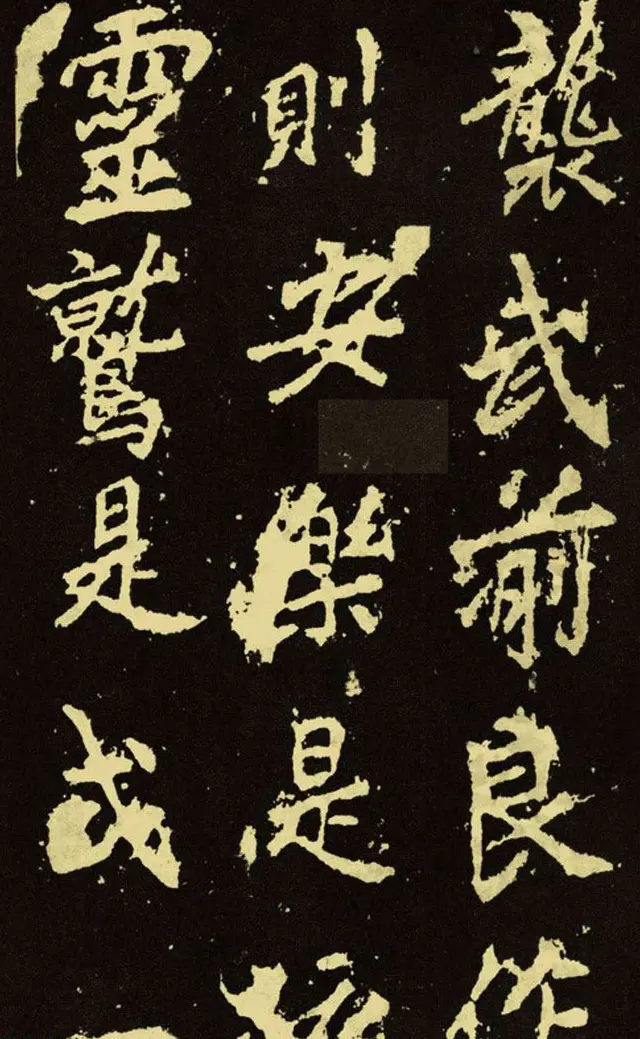 襲武前良作
則安樂是
靈鷲是